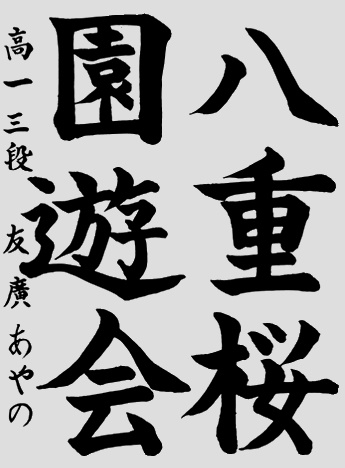 八重桜
園遊会
高一三段 友廣あやの